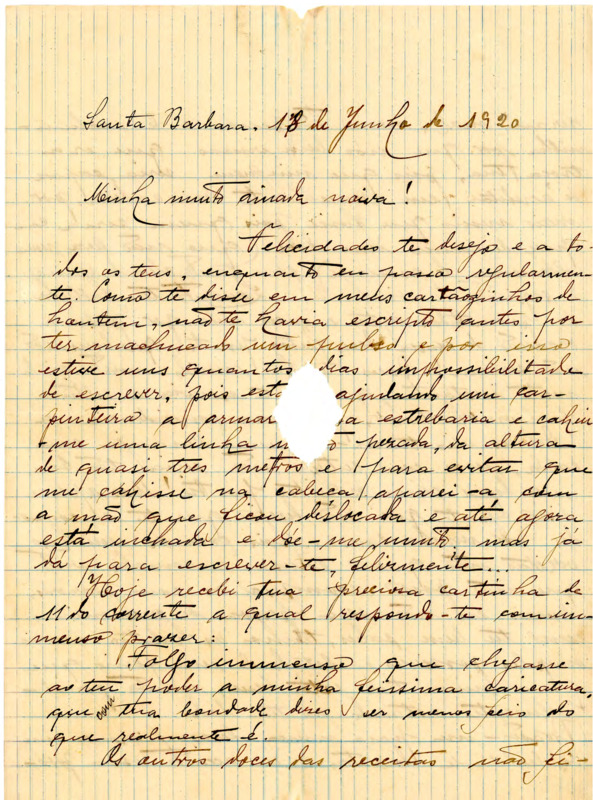 Santa Barbara, 18 de Junho de 1920
Minha muito amada noiva!
Felicidades te desejo e a to-
dos os teus, enquanto eu passo regularmen-
te. Como te disse em meus cartãozinhos de
hontem, não te havia escripto antes por
ter machucado um pulso e por isso
estive uns quantos dias impossibilitado
de escrever, pois ajudando um car-
pintura a armar estrebaria e cahiu
-me uma linha pezada, da altura
de quasi tres metros e para evitar que
me cahisse na cabeca aparei-a com
a mão que ficou deslocada e até agora
está inchada e dóe-me muito, mas já
dá para escrever-te, felizmente...
Hoje recebi tua preciosa cartinha de
11 do corrente a qual respondo-te com im-
menso prazer:
Folgo immenso que chegasse
ao teu poder a minha feissima caricatura,
que com tua bondade dizes ser menos feio do
que realmente é.
Os outros doces das receitas não fi-